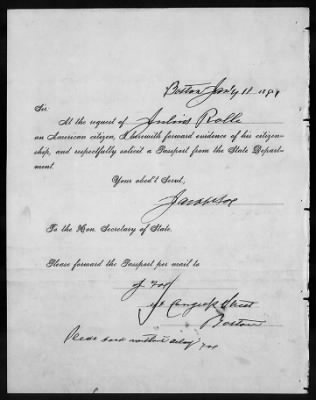 Boston Jan'y 11 189
Sir:
At the request of Julius Rolle
an American citizen, I herewith forward evidence of his citizen-
ship, and respectfully solicit a Passport from the State Depart-
ment.
Your obed't Servt,
Jacob Fox
To the Hon. Secretary of State.
Please forward the Passport per mail to
J Fox
Congress Street
Boston
Please send without delay